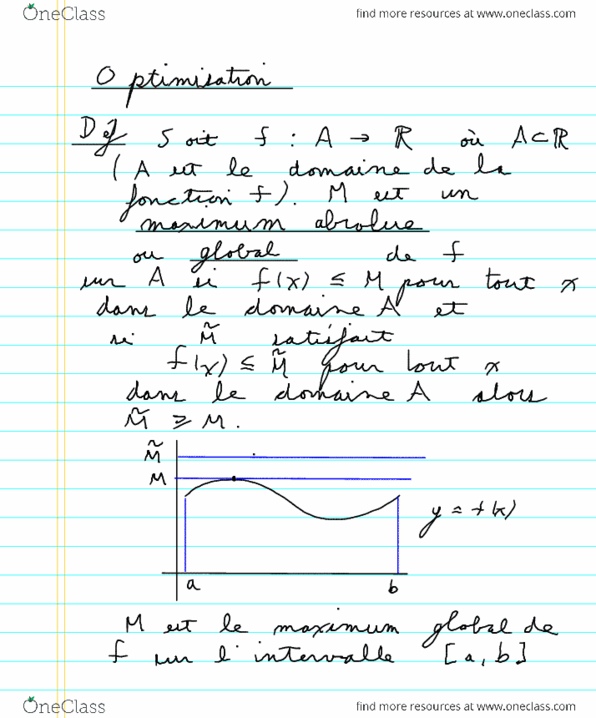 OneClass
find more resources at www.oneclass.com
Optimisation
Def Soit f : A → ℝ où A⊂ℝ
(A est le domaine de la
fonction f). M est un
maximum absolue
ou global de f
sur A si f(x) ≤ M pour tout x
dans le domaine A et
si M̃ satisfait
f(x) ≤ M̃ pour tout x
dans le domaine A alors
M̃ ≥ M.
M̃
M
y = f(x)
a b
M est le maximum global de
f sur l'intervalle [a,b]
OneClass
find more resources at www.oneclass.com